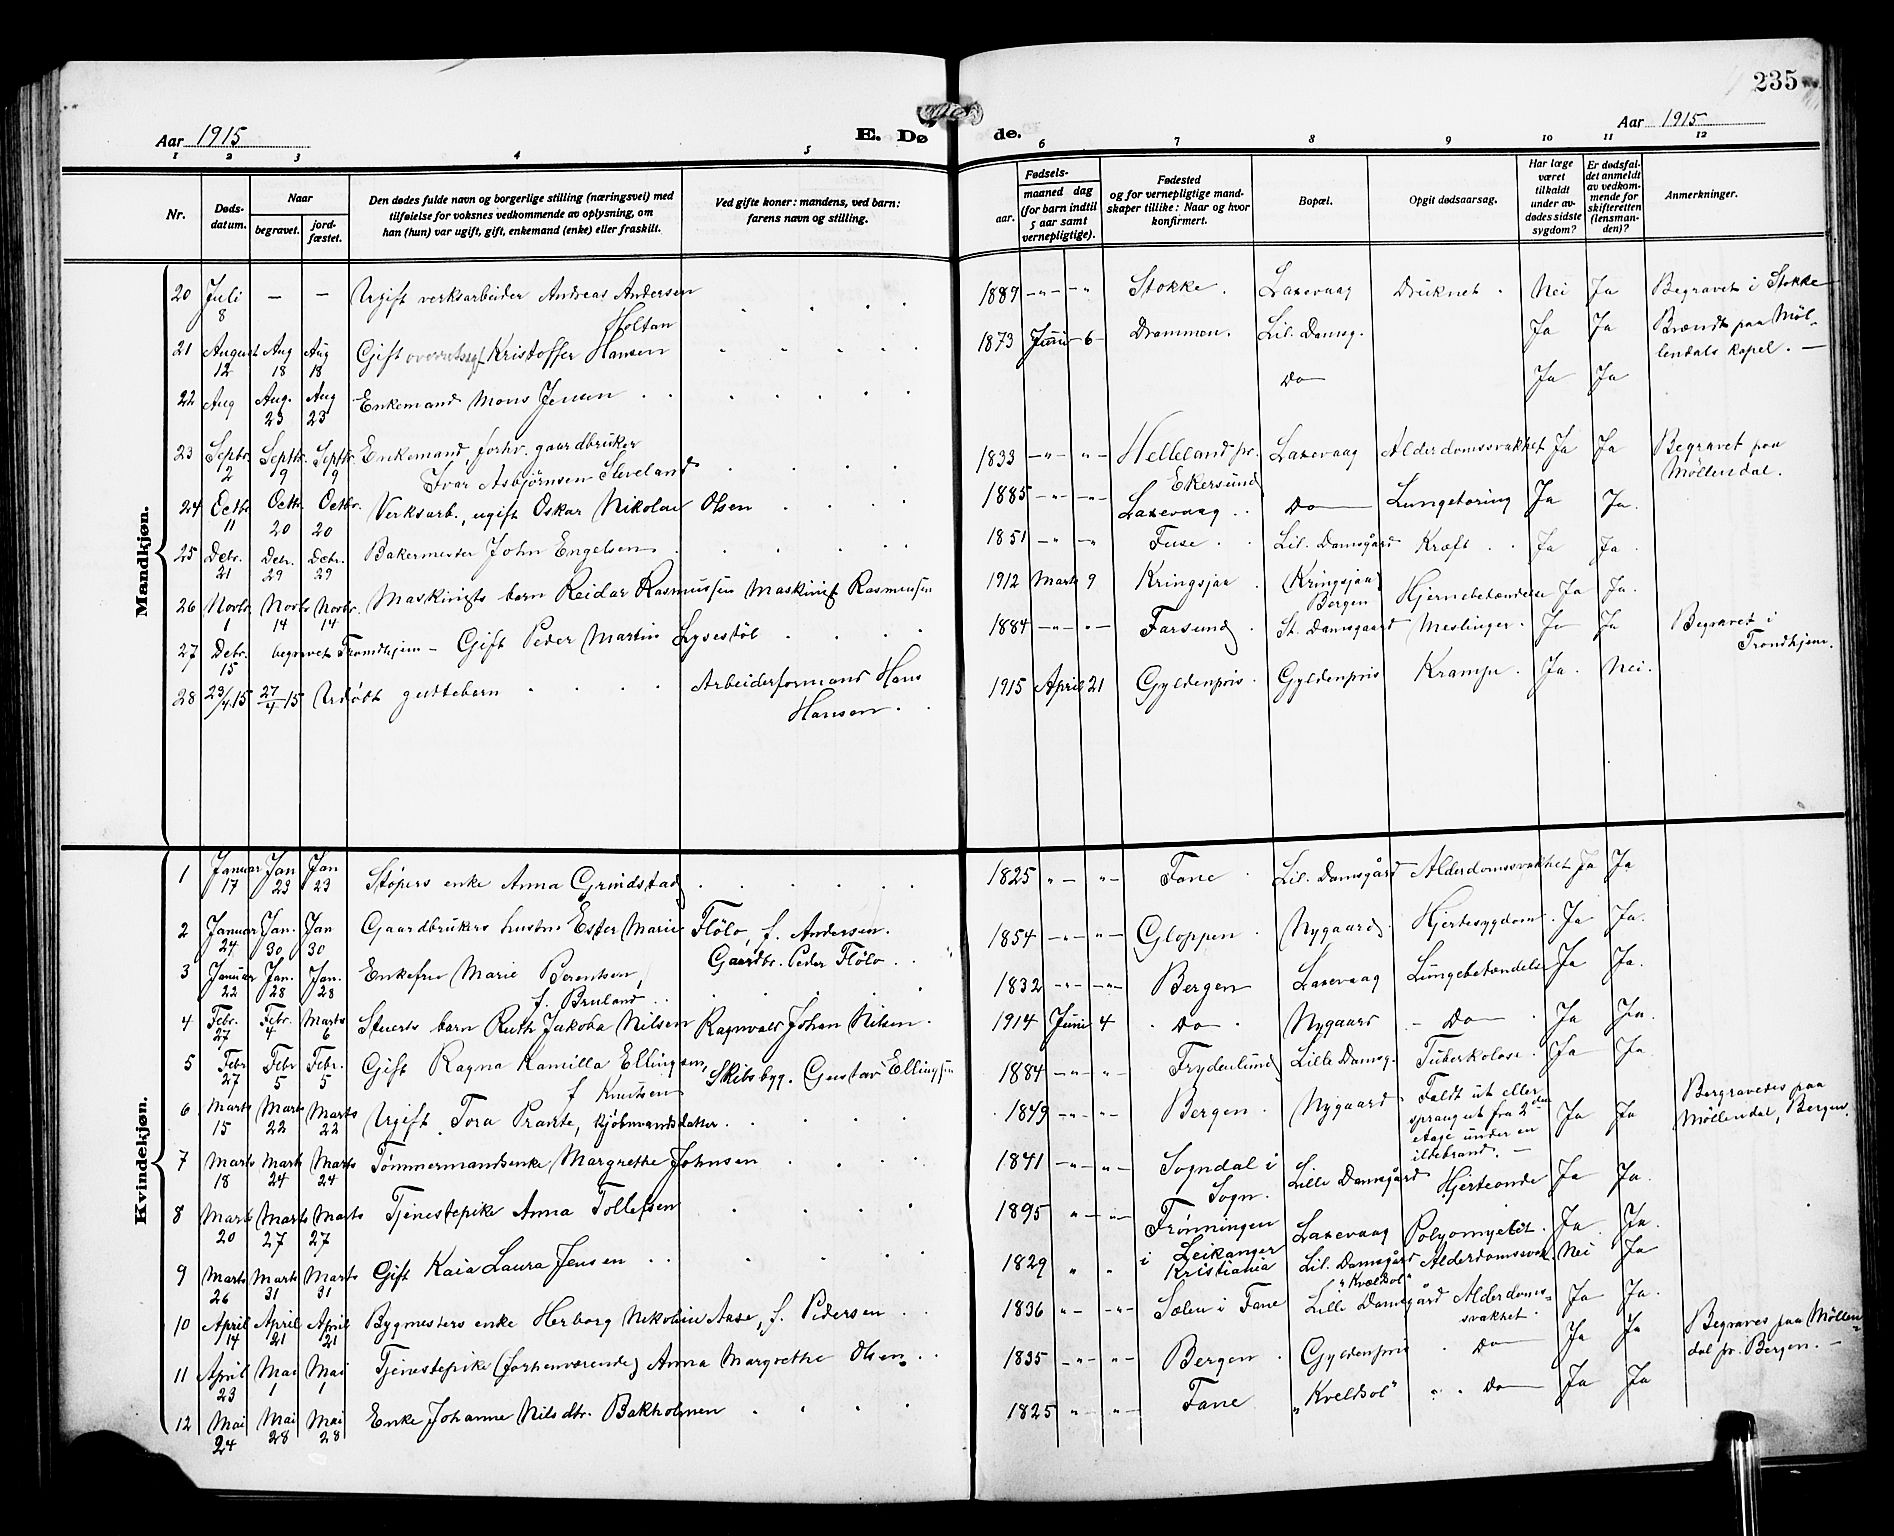 235
Aar 1915 E. Dø de. Aar 1915
1 2 3 4 5 6 7 8 9 10 11 12
Nr. Døds-datum. Naar begravet. jord-fæstet. Den dødes fulde navn og borgerlige stilling (næringsvei) med tilføielse for voksnes vedkommende av oplysning, om han (hun) var ugift, gift, enkemand (enke) eller fraskilt. Ved gifte koner: mandens, ved barn: farens navn og stilling. Fødsels- aar. maaned dag (for barn indtil 5 aar samt vernepligtige). Fødested og for vernepligtige mand-skaper tillike: Naar og hvor konfirmert. Bopæl. Opgit dødsaarsag. Har læge været tilkaldt under av-dødes sidste sygdom? Er dødsfal-det anmeldt av vedkom-mende for skifteretten (lensman-den)? Anmerkninger.
Mandkjøn.
20 Juli 8 — — Ugift verksarbeider Andreas Andersen Holtan 1889 -"- -"- Stokke. Laxevaag Druknet. Nei Ja Begravet i Stokke
21 August 12 Aug 18 Aug 18 Gift Kristoffer Hansen 1873 Juni 6 Drammen. Lil. Damsg. Ja Ja Brændt paa Møl-lendals kapel. —
22 Aug Aug. 23 Aug 23 Enkemand Mons Jensen Do Ja Ja
23 Septbr. 2 Septbr. 9 Septbr. 9 Enkemand, forhv. gaardbruker Ivar Asbjørnsen Sleveland 1833 -"- "- Helleland pr. Ekersund Laxevaag Alderdomssvakhet Ja Ja Begravet paa Møllendal.
24 Octbr 11 Octb. 20 Octbr. 20 Verksarb., ugift Oskar Nikolai Olsen 1885 -"- -"- Laxevaag Do Lungetæring Ja Ja.
25 Debr. 21 Debr. 29 Debr. 29 Bakermester John Engelsen 1851 -"- -"- Fuse Lil. Damsgård Kræft Ja Ja.
26 Novbr. 1 Novbr 14 Novbr. 14 Maskinists barn Reidar Rasmussen Maskinist Rasmussen 1912 Marts 9 Kringsjaa (Kringsjaa) Bergen Hjernebetændelse Ja Ja.
27 Debr. 15 begravet Trondhjem – Gift Peder Martin Lysestöl 1884 -"- "- Farsund St. Damsgaard Meslinger. Ja Ja Begravet i Trondhjem.
28 23/4 15 27/4 15 Urdødt guttebarn Arbeiderformand Hans Hansen 1915 April 21 Gyldenpris Gyldenpris Krampe. Ja. Nei.
Kvindekjøn.
1 Januar 17 Jan 23 Jan 23 Støpers enke Anna Grindstad 1825 "- "- Fane Lil. Damsgård Alderdomssvakhet Ja Ja
2 Januar 24 Jan. 30 Jan 30 Gaardbrukers hustru Ester Marie Flölo, f. Andersen. Gaardbr. Peder Flölo 1854 -"- "- Gloppen Nygaard Hjertesygdom. Ja Ja.
3 Januar 22 Jan. 28 Jan. 28 Enkefru Marie Berentsen, f. Bruland 1832 -"- -"- Bergen Laxevaag Lungebetændelse Ja Ja.
4 Febr. 27 Febr. 4 Marts 6 Stuerts barn Ruth Jakoba Nilsen Ragnvald Johan Nilsen. 1914 Juni 4 Do Nygaard Do Ja Ja.
5 Febr 27 Febr 5 Febr. 5 Gift Ragna Kamilla Ellingsen, f Knutsen Skibsbyg. Gustav Ellingsen 1884 -"- "- Frydenlund Lille Damsg. Tuberkolose. Ja Ja.
6 Marts 15 Marts 22 Marts 22 Ugift Tora Prante, kjöbmandsdatter 1849 -"- "- Bergen Nygaard Faldt ut eller sprang ut fra 2den etage under en ildebrand. — Ja Ja Bergravedes paa Møllendal, Bergen.
7 Marts 18 Marts 24 Marts 24 Tømmermandsenke Margrethe Johnsen 1841 -"- "- Sogndal i Sogn. Lille Damsgård Hjerteonde Ja Ja.
8 Marts 20 Marts 27 Marts 27 Tjenestepike Anna Tollefsen 1895 "- -"- Frønningen i Leikanger Laxevaag Polyomyelit. Ja. Ja.
9 Marts 26 Marts 31 Marts 31 Gift Kaia Laura Jensen 1829 " " Kristiania Lil. Damsgård "Kveldsol" Alderdomssvak. Nei Ja
10 April 14 April 21 April 21 Bygmesters enke Herborg Nikoline Aase, f. Pedersen 1836 "- -"- Sælen i Fane Lille Damsgård Alderdoms-svakhet. Ja Ja.
11 April 23 Mai 1 Mai 1 Tjenestepike (forhenværende) Anna Margrethe Olsen. 1835 -"- "- Bergen Gyldenpris Do Ja Ja Begraves paa Møllen-dal pr. Bergen. —
12 Mai 24 Mai 28 Mai 28 Enke Johanne Nilsdtr. Bakholmen 1825 "- "- Fane "Kveldsol" Do Ja Ja